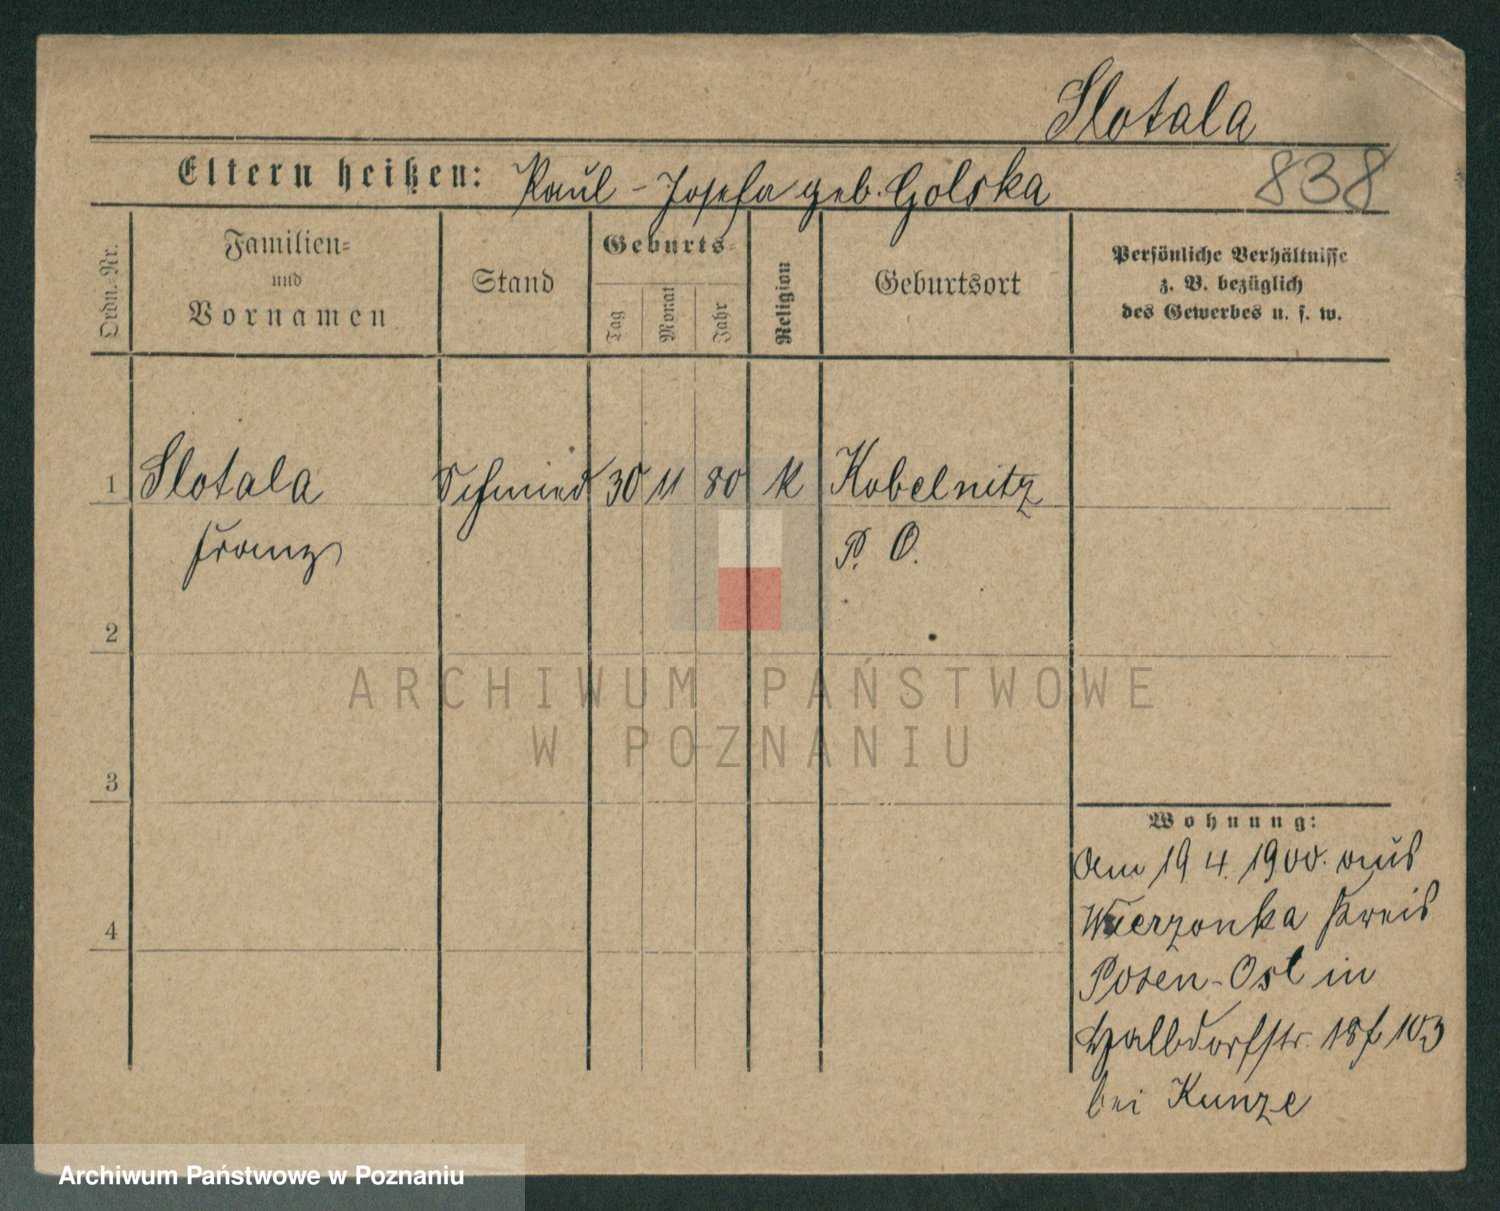 Slotala
838
Eltern heißen: Paul - Josefa geb. Golska
Ordn. Nr.
Familien-
und
Vornamen
Stand
Geburts-
Tag
Monat
Jahr
Religion
Geburtsort
Persönliche Verhältnisse
z. B. bezüglich
des Gewerbes u. s. w.
1 Slotala Schmied 30 11 80 K Kobelnitz
Franz P. O.
2
3
4
ARCHIWUM PAŃSTWOWE
W POZNANIU
Wohnung:
Am 19 4. 1900. aus
Wierzonka Kreis
Posen-Ost in
Halbdorfstr. 18 f. 103
bei Kunze
Archiwum Państwowe w Poznaniu